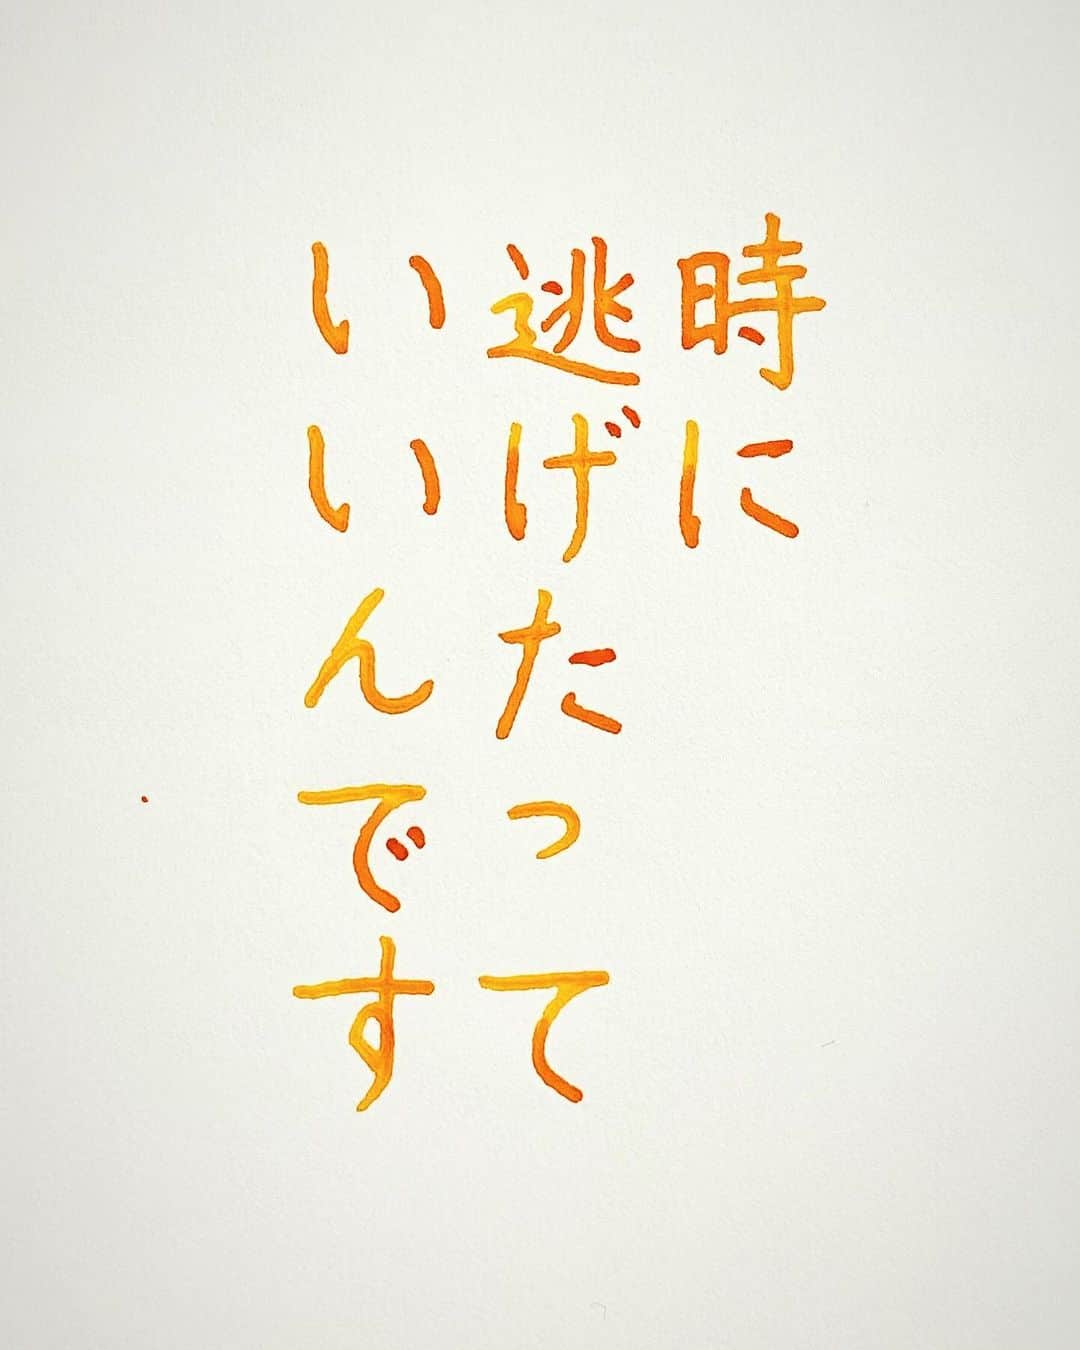 時に
逃げたって
いいんです